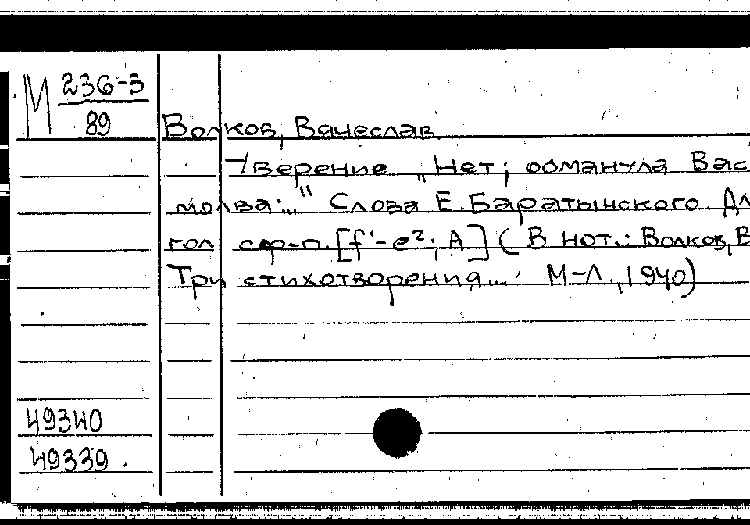 М 236-3
89
Волков, Вячеслав
Уверение „Нет, обманула Вас
молва..." Слова Е. Баратынского. Дл
гол с ф-п. [f'-e²; A] (В нот.: Волков, В
Три стихотворения... М-Л, 1940)
49340
49339.